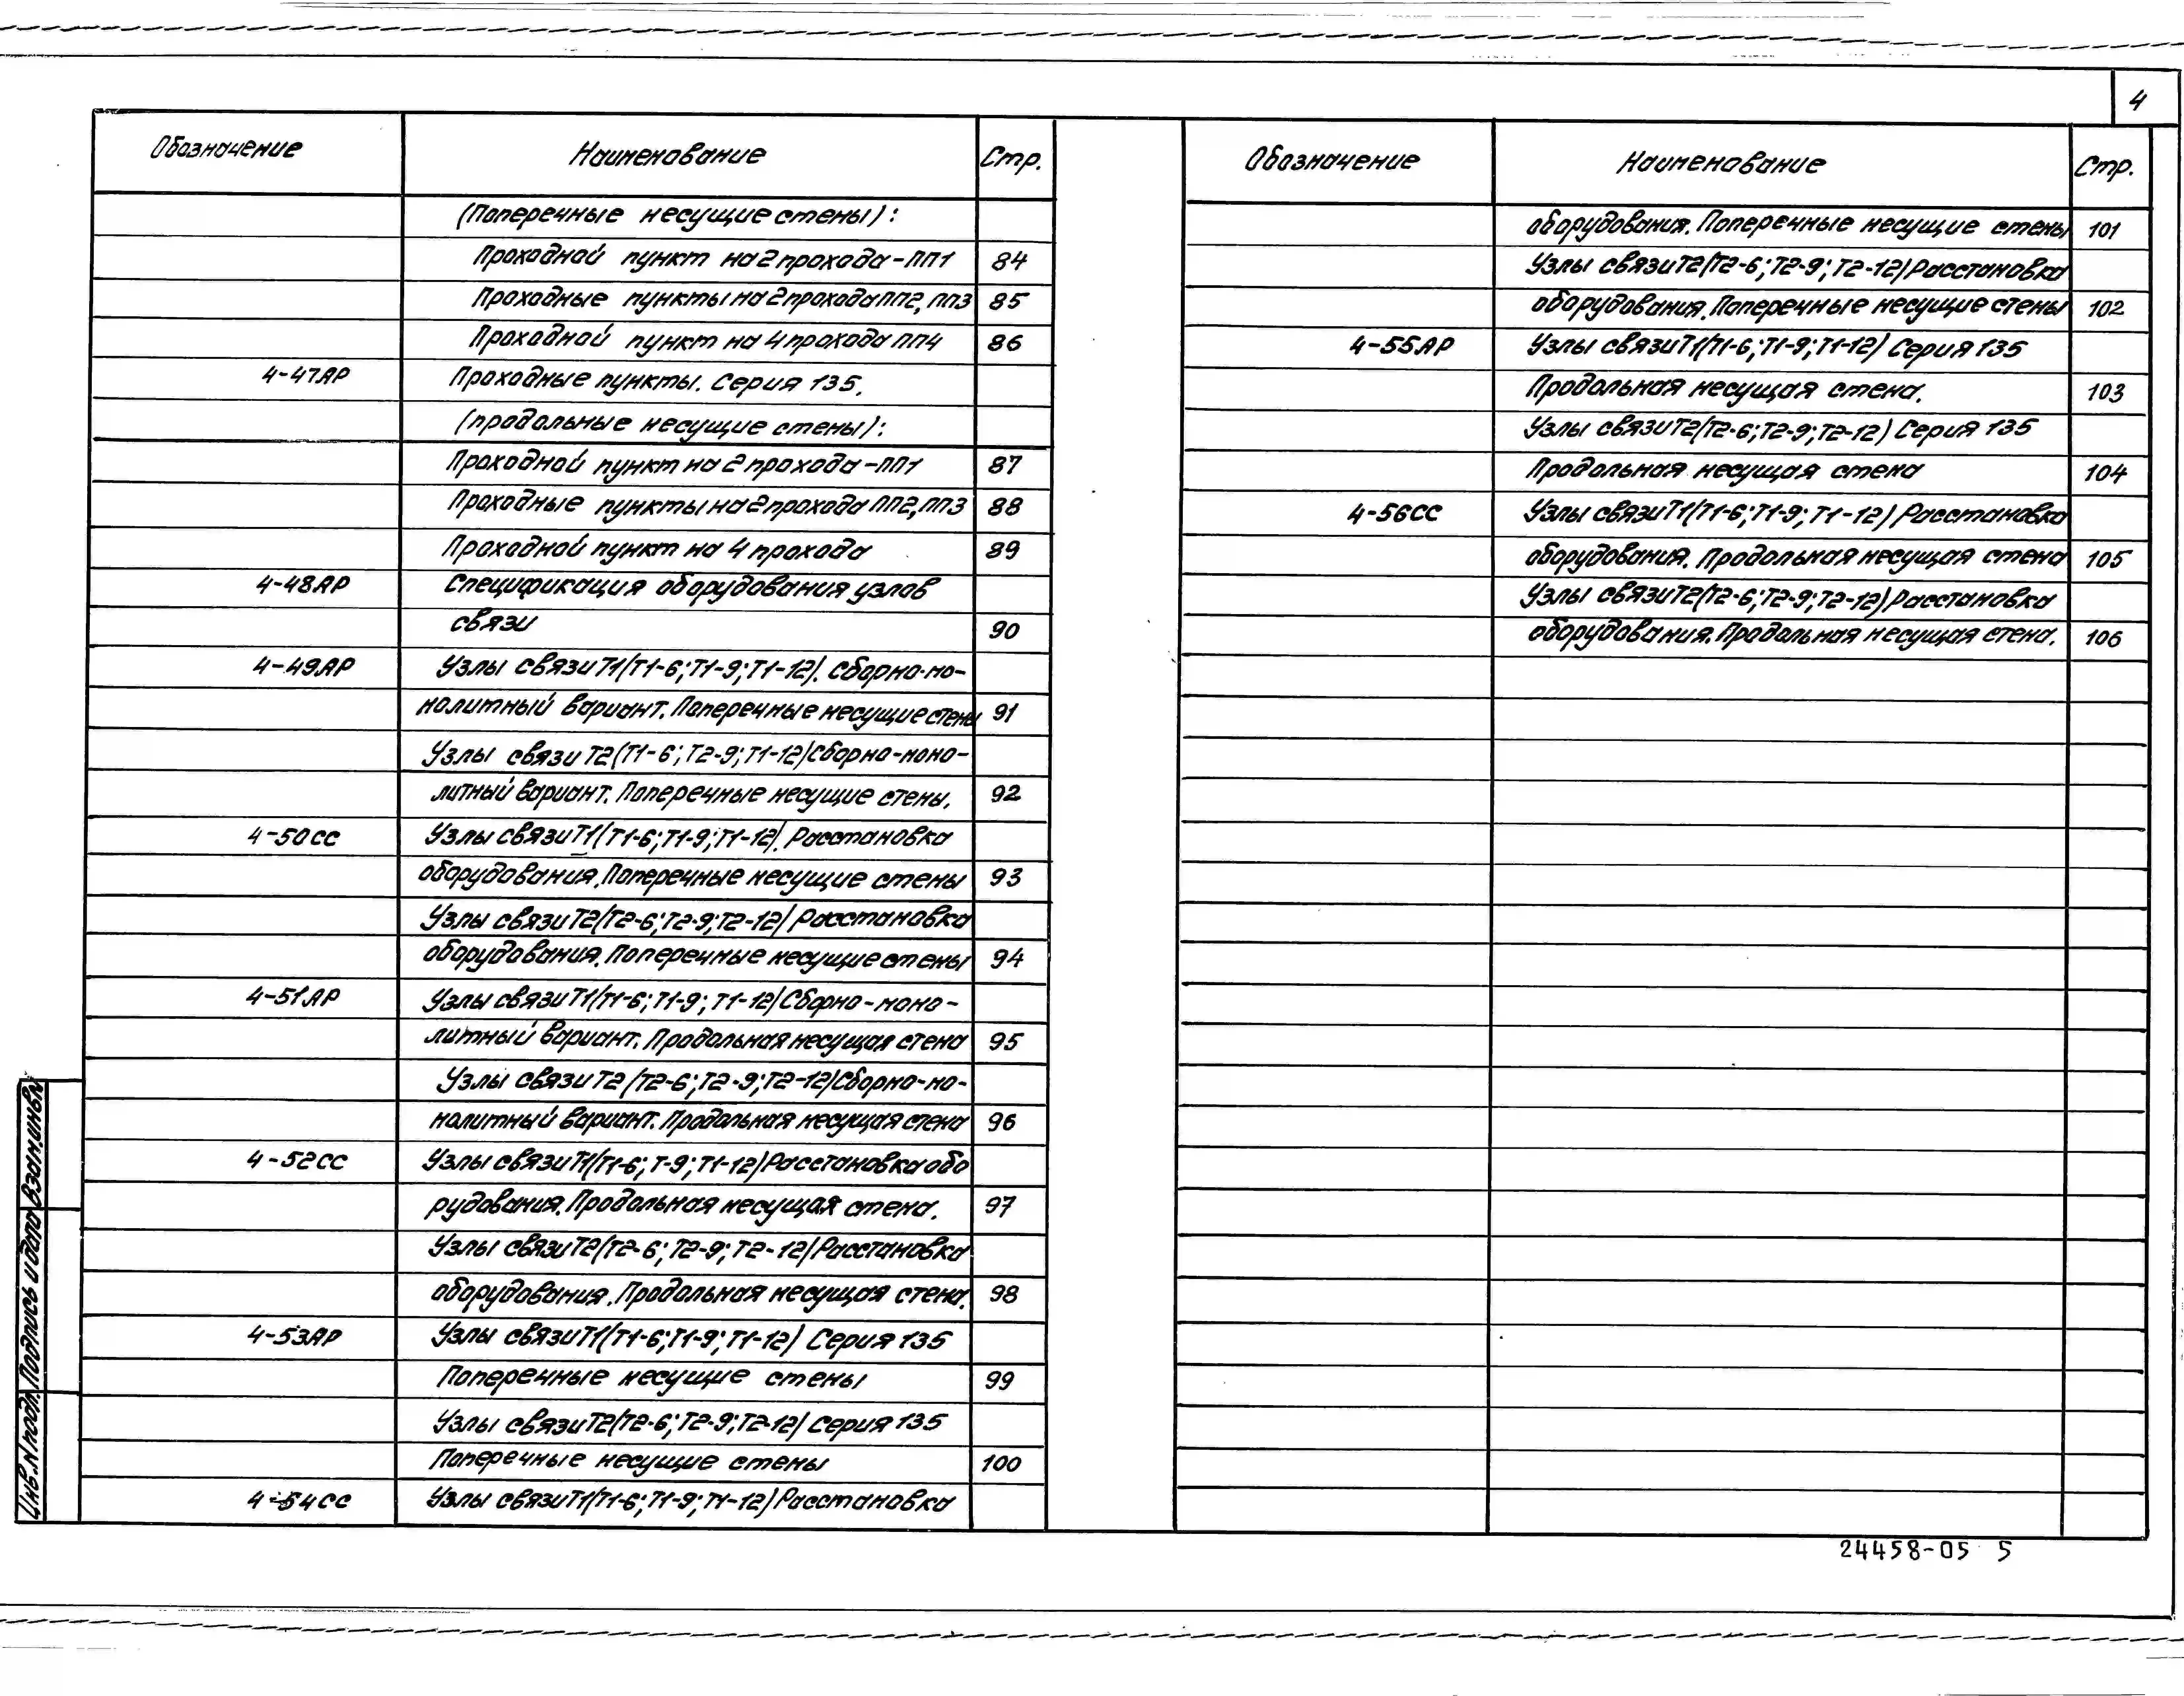 4
Обозначение Наименование Стр.
(Поперечные несущие стены):
Проходной пункт на 2 прохода-ПП1 84
Проходные пункты на 2 прохода ПП2, ПП3 85
Проходной пункт на 4 прохода ПП4 86
4-47АР Проходные пункты. Серия 135.
(продольные несущие стены):
Проходной пункт на 2 прохода-ПП1 87
Проходные пункты на 2 прохода ПП2, ПП3 88
Проходной пункт на 4 прохода 89
4-48АР Спецификация оборудования узлов
связи 90
4-49АР Узлы связи Т1(Т1-6; Т1-9; Т1-12). Сборно-мо-
нолитный вариант. Поперечные несущие стены 91
Узлы связи Т2(Т1-6; Т2-9; Т1-12) Сборно-моно-
литный вариант. Поперечные несущие стены. 92
4-50СС Узлы связи Т1(Т1-6; Т1-9; Т1-12). Расстановка
оборудования. Поперечные несущие стены 93
Узлы связи Т2(Т2-6; Т2-9; Т2-12) Расстановка
оборудования. Поперечные несущие стены 94
4-51АР Узлы связи Т1(Т1-6; Т1-9; Т1-12) Сборно-моно-
литный вариант. Продольная несущая стена 95
Узлы связи Т2(Т2-6; Т2-9; Т2-12) Сборно-мо-
нолитный вариант. Продольная несущая стена 96
4-52СС Узлы связи Т1(Т1-6; Т-9; Т1-12) Расстановка обо
рудования. Продольная несущая стена. 97
Узлы связи Т2(Т2-6; Т2-9; Т2-12) Расстановка
оборудования. Продольная несущая стена. 98
4-53АР Узлы связи Т1(Т1-6; Т1-9; Т1-12) Серия 135
Поперечные несущие стены 99
Узлы связи Т2(Т2-6; Т2-9; Т2-12) Серия 135
Поперечные несущие стены 100
4-54СС Узлы связи Т1(Т1-6; Т1-9; Т1-12) Расстановка
Обозначение Наименование Стр.
оборудования. Поперечные несущие стены 101
Узлы связи Т2(Т2-6; Т2-9; Т2-12) Расстановка
оборудования. Поперечные несущие стены 102
4-55АР Узлы связи Т1(Т1-6; Т1-9; Т1-12) Серия 135
Продольная несущая стена. 103
Узлы связи Т2(Т2-6; Т2-9; Т2-12) Серия 135
Продольная несущая стена 104
4-56СС Узлы связи Т1(Т1-6; Т1-9; Т1-12) Расстановка
оборудования. Продольная несущая стена 105
Узлы связи Т2(Т2-6; Т2-9; Т2-12) Расстановка
оборудования. Продольная несущая стена. 106
Инв.N подл. Подпись и дата Взам.инв.N
24458-05 5